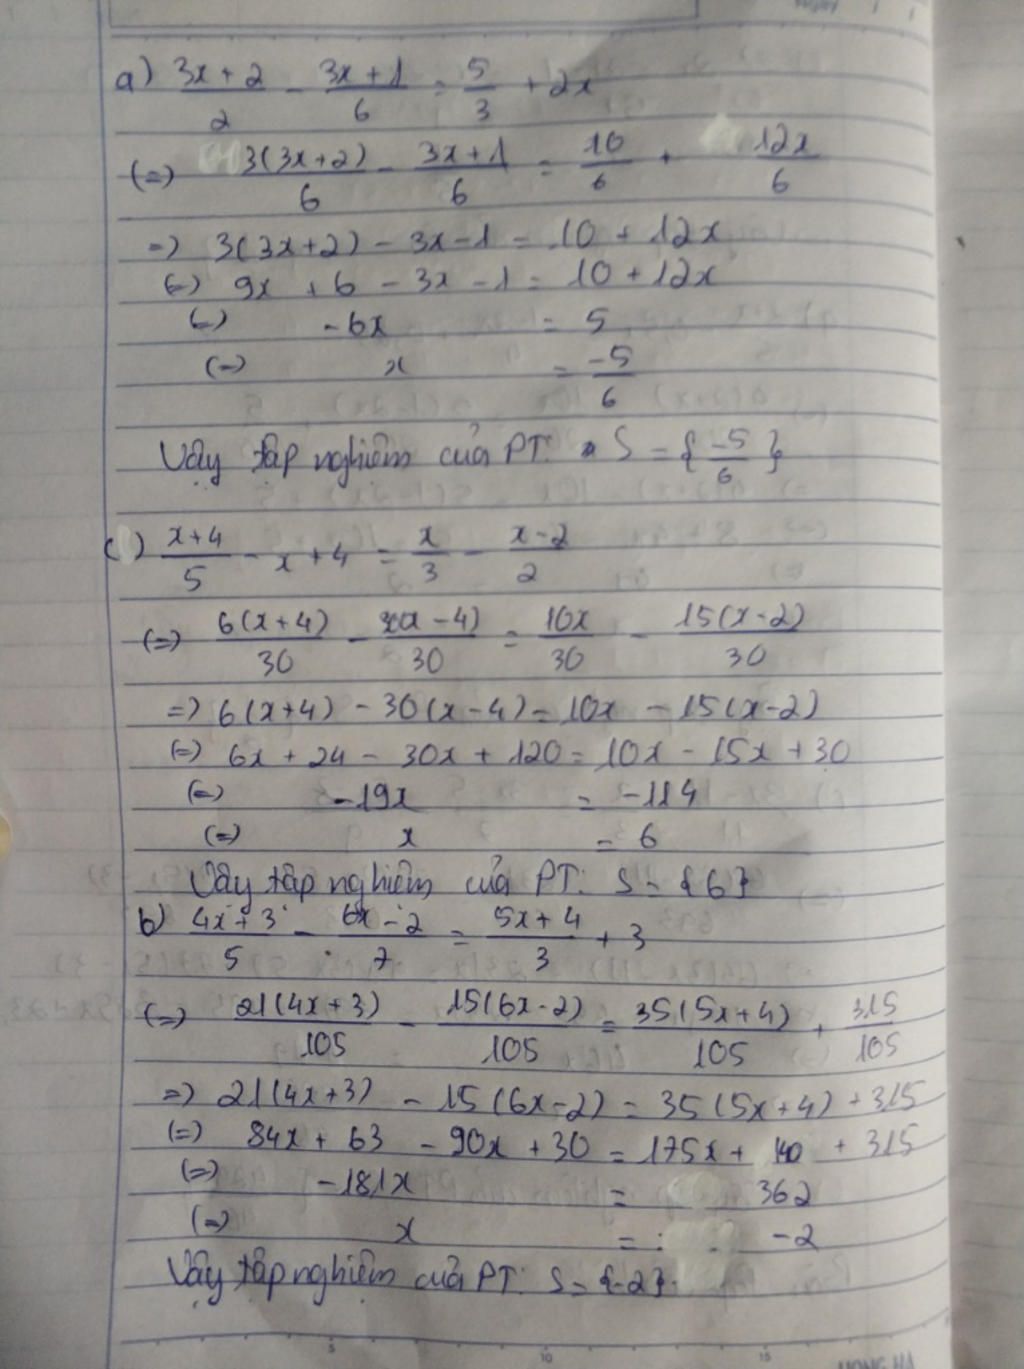 a) (3x+2)/2 - (3x+1)/6 = 5/3 + 2x
(=) 3(3x+2)/6 - (3x+1)/6 = 10/6 + 12x/6
=) 3(3x+2) - 3x-1 = 10 + 12x
(=) 9x + 6 - 3x - 1 = 10 + 12x
(=) -6x = 5
(=) x = -5/6
Vậy tập nghiệm của PT: S = {-5/6}
c) (x+4)/5 - x + 4 = x/3 - (x-2)/2
(=) 6(x+4)/30 - (x-4)/30 = 10x/30 - 15(x-2)/30
=) 6(x+4) - 30(x-4) = 10x - 15(x-2)
(=) 6x + 24 - 30x + 120 = 10x - 15x + 30
(=) -19x = -114
(=) x = 6
Vậy tập nghiệm của PT: S = {6}
b) (4x+3)/5 - (6x-2)/7 = (5x+4)/3 + 3
(=) 21(4x+3)/105 - 15(6x-2)/105 = 35(5x+4)/105 + 315/105
=) 21(4x+3) - 15(6x-2) = 35(5x+4) + 315
(=) 84x + 63 - 90x + 30 = 175x + 140 + 315
(=) -181x = 362
(=) x = -2
Vậy tập nghiệm của PT: S = {-2}
5 10 15